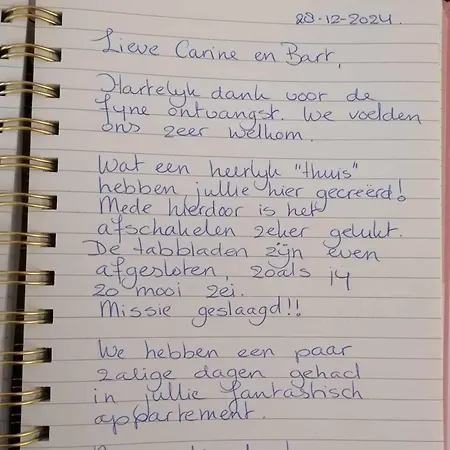 28-12-2024.
Lieve Carine en Bart,
Hartelyk dank voor de
fyne ontvangst. We voelden
ons zeer welkom.
Wat een heerlyk "thuis"
hebben jullie hier gecreërd!
Mede hierdoor is het
afschakelen zeker gelukt.
De tabbladen zijn even
afgesloten, zoals jij
zo mooi zei.
Missie geslaagd!!
We hebben een paar
zalige dagen gehad
in jullie fantastisch
appartement.